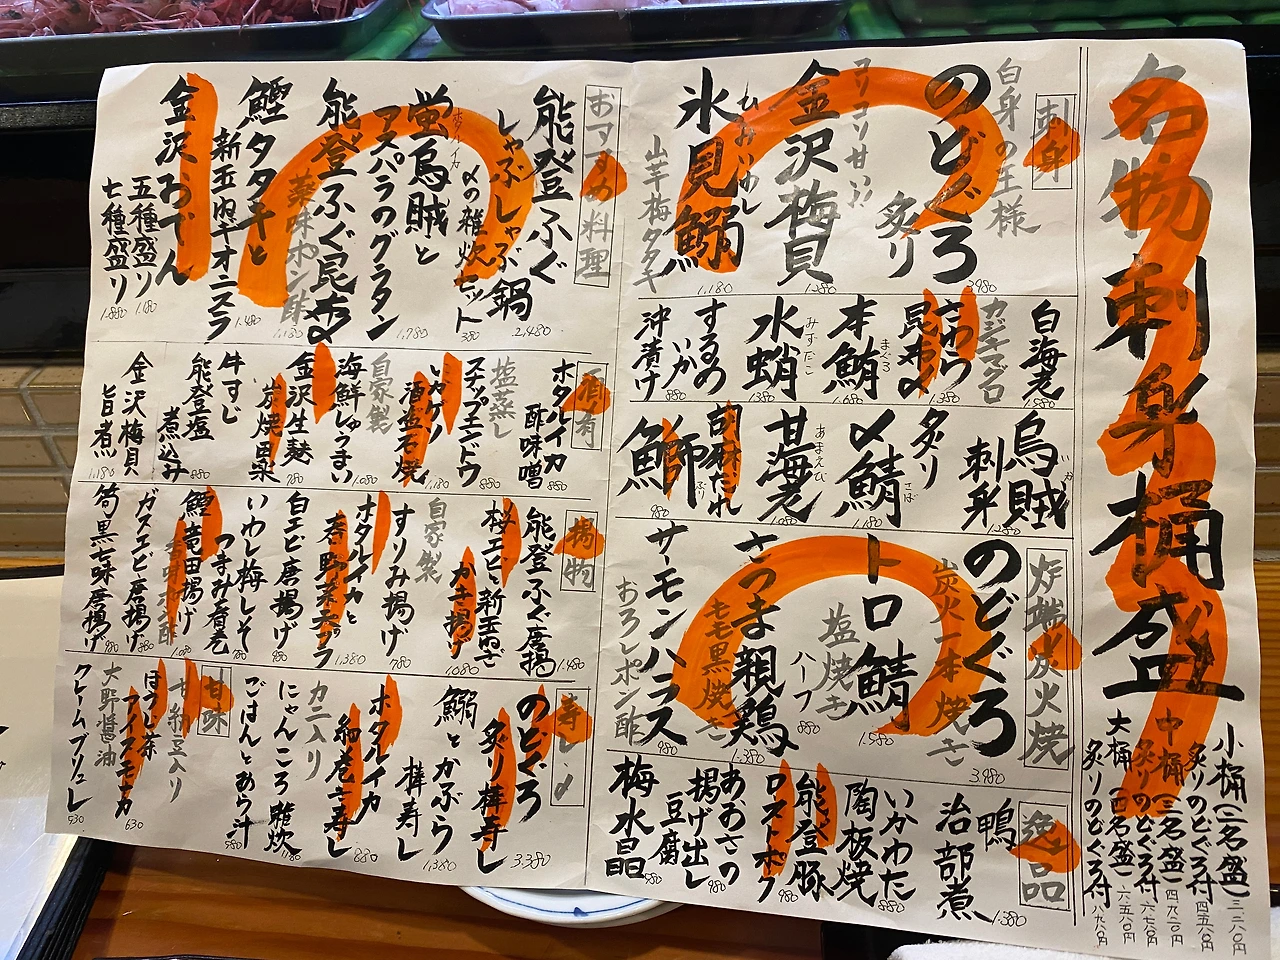 名物 刺身桶盛
小桶(二名盛)三二八〇円
炙りのどぐろ付 四五八〇円
中桶(三名盛)四九二〇円
炙りのどぐろ付 六七八〇円
大桶(四名盛)六五八〇円
炙りのどぐろ付 八九八〇円
刺身
白身の王様
のどぐろ 炙り 3980
コリコリ甘い!!
金沢梅貝 1,280
ひみいわし
氷見鰯 1,180
山芋梅タタキ
白海老 1,580
カジキマグロ
さわら
昆布〆 1,380
本鮪 まぐろ 1,680
水蛸 みずだこ 1,380
するの
いか
沖漬け 880
烏賊 いか
刺身 1,280
炙り
〆鯖 さば 1,180
甘海老 あまえび 1,080
胡麻だれ
鰤 ぶり 980
炉端炭火焼
のどぐろ
炭火一本焼き 3,980
トロ鯖 1,580
塩焼き
ハーフ 880
さつま親鶏 1,380
モモ黒焼き
サーモンハラス 980
おろしポン酢
逸品
鴨
治部煮 1,380
いかわた
陶板焼 880
能登豚
ロストポーク 980
あおさの
揚げ出し
豆腐 980
梅水晶 580
おすすめ料理
能登ふぐ
しゃぶしゃぶ鍋 2,480
〆の雑炊セット 380
ホタルイカ
蛍烏賊と
アスパラのグラタン 1,780
能登ふぐ昆布〆
薬味ポン酢 1,180
鰹タタキと
新玉ねぎオニスラ 1,480
金沢おでん
五種盛り 1,180
七種盛り 1,580
酒肴
ホタルイカ
酢味噌 880
スナップエンドウ
塩蒸し 880
いかゲソ
酒盗石焼 1,180
自家製
海鮮しゅうまい 1,080
金沢生麸
炭焼田楽 780
牛すじ
能登塩
煮込み 880
金沢梅貝
旨煮 1,180
揚物
能登ふぐ唐揚 1,480
桜エビと新玉ねぎ
かき揚げ 1,080
自家製
すりみ揚げ 780
ホタルイカと
春野菜天プラ 1,380
白エビ唐揚げ 980
いわし梅しそ
つまみ春巻 780
鰹竜田揚げ
香味ポン酢 1,080
ガスエビ唐揚げ 880
筍黒七味唐揚げ 980
寿し・〆
のどぐろ
炙り棒寿し 3,380
鰯とかぶら
棒寿し 1,380
ホタルイカ
細巻寿し 880
カニ入り
にゃんころ雑炊 1,180
ごはんとあら汁 580
甘味
甘納豆入り
ほうじ茶
アイスモナカ 630
大野醤油
クレームブリュレ 530